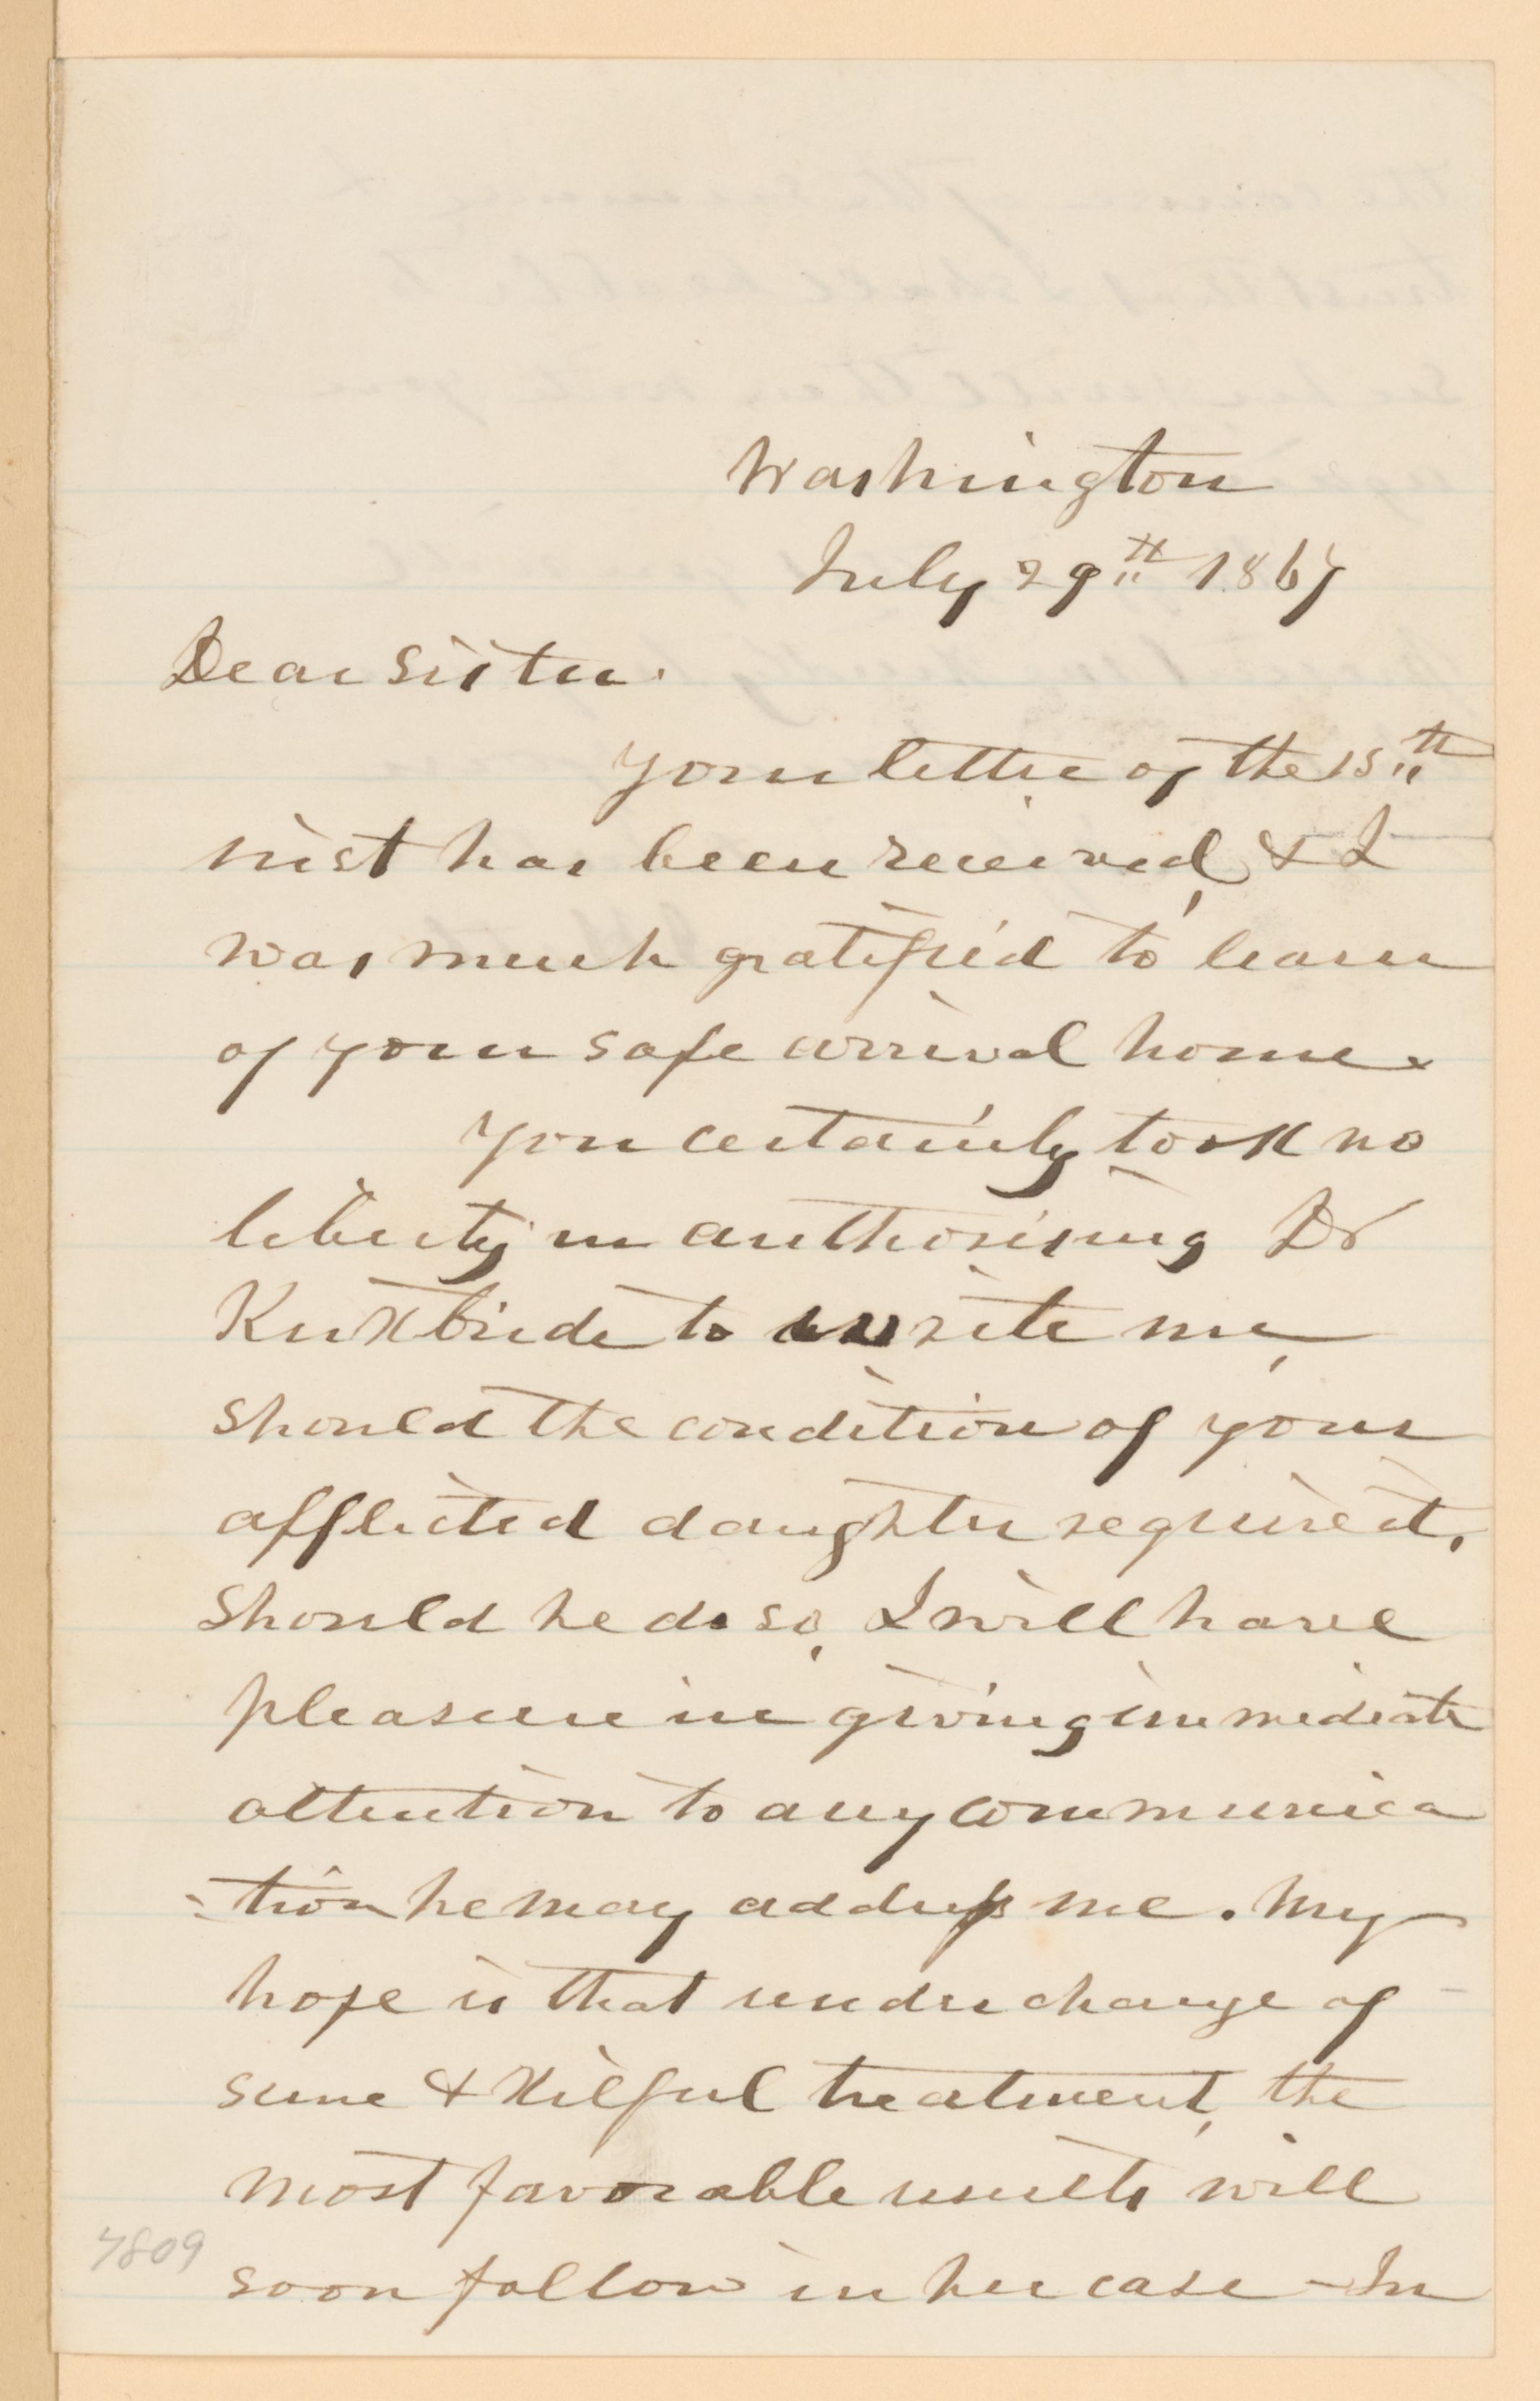 Washington
July 29th 1867
Dear Sister.
Your letter of the 15th
inst has been received, & I
was much gratified to learn
of your safe arrival home.
You certainly took no
liberty in authorising Dr
Kirkbride to write me,
should the condition of your
afflicted daughter require it.
Should he do so, I will have
pleasure in giving immediate
attention to any communica
-tion he may address me. My
hope is that under charge of
some skilful treatment, the
most favorable results will
soon follow in her case - In
7809